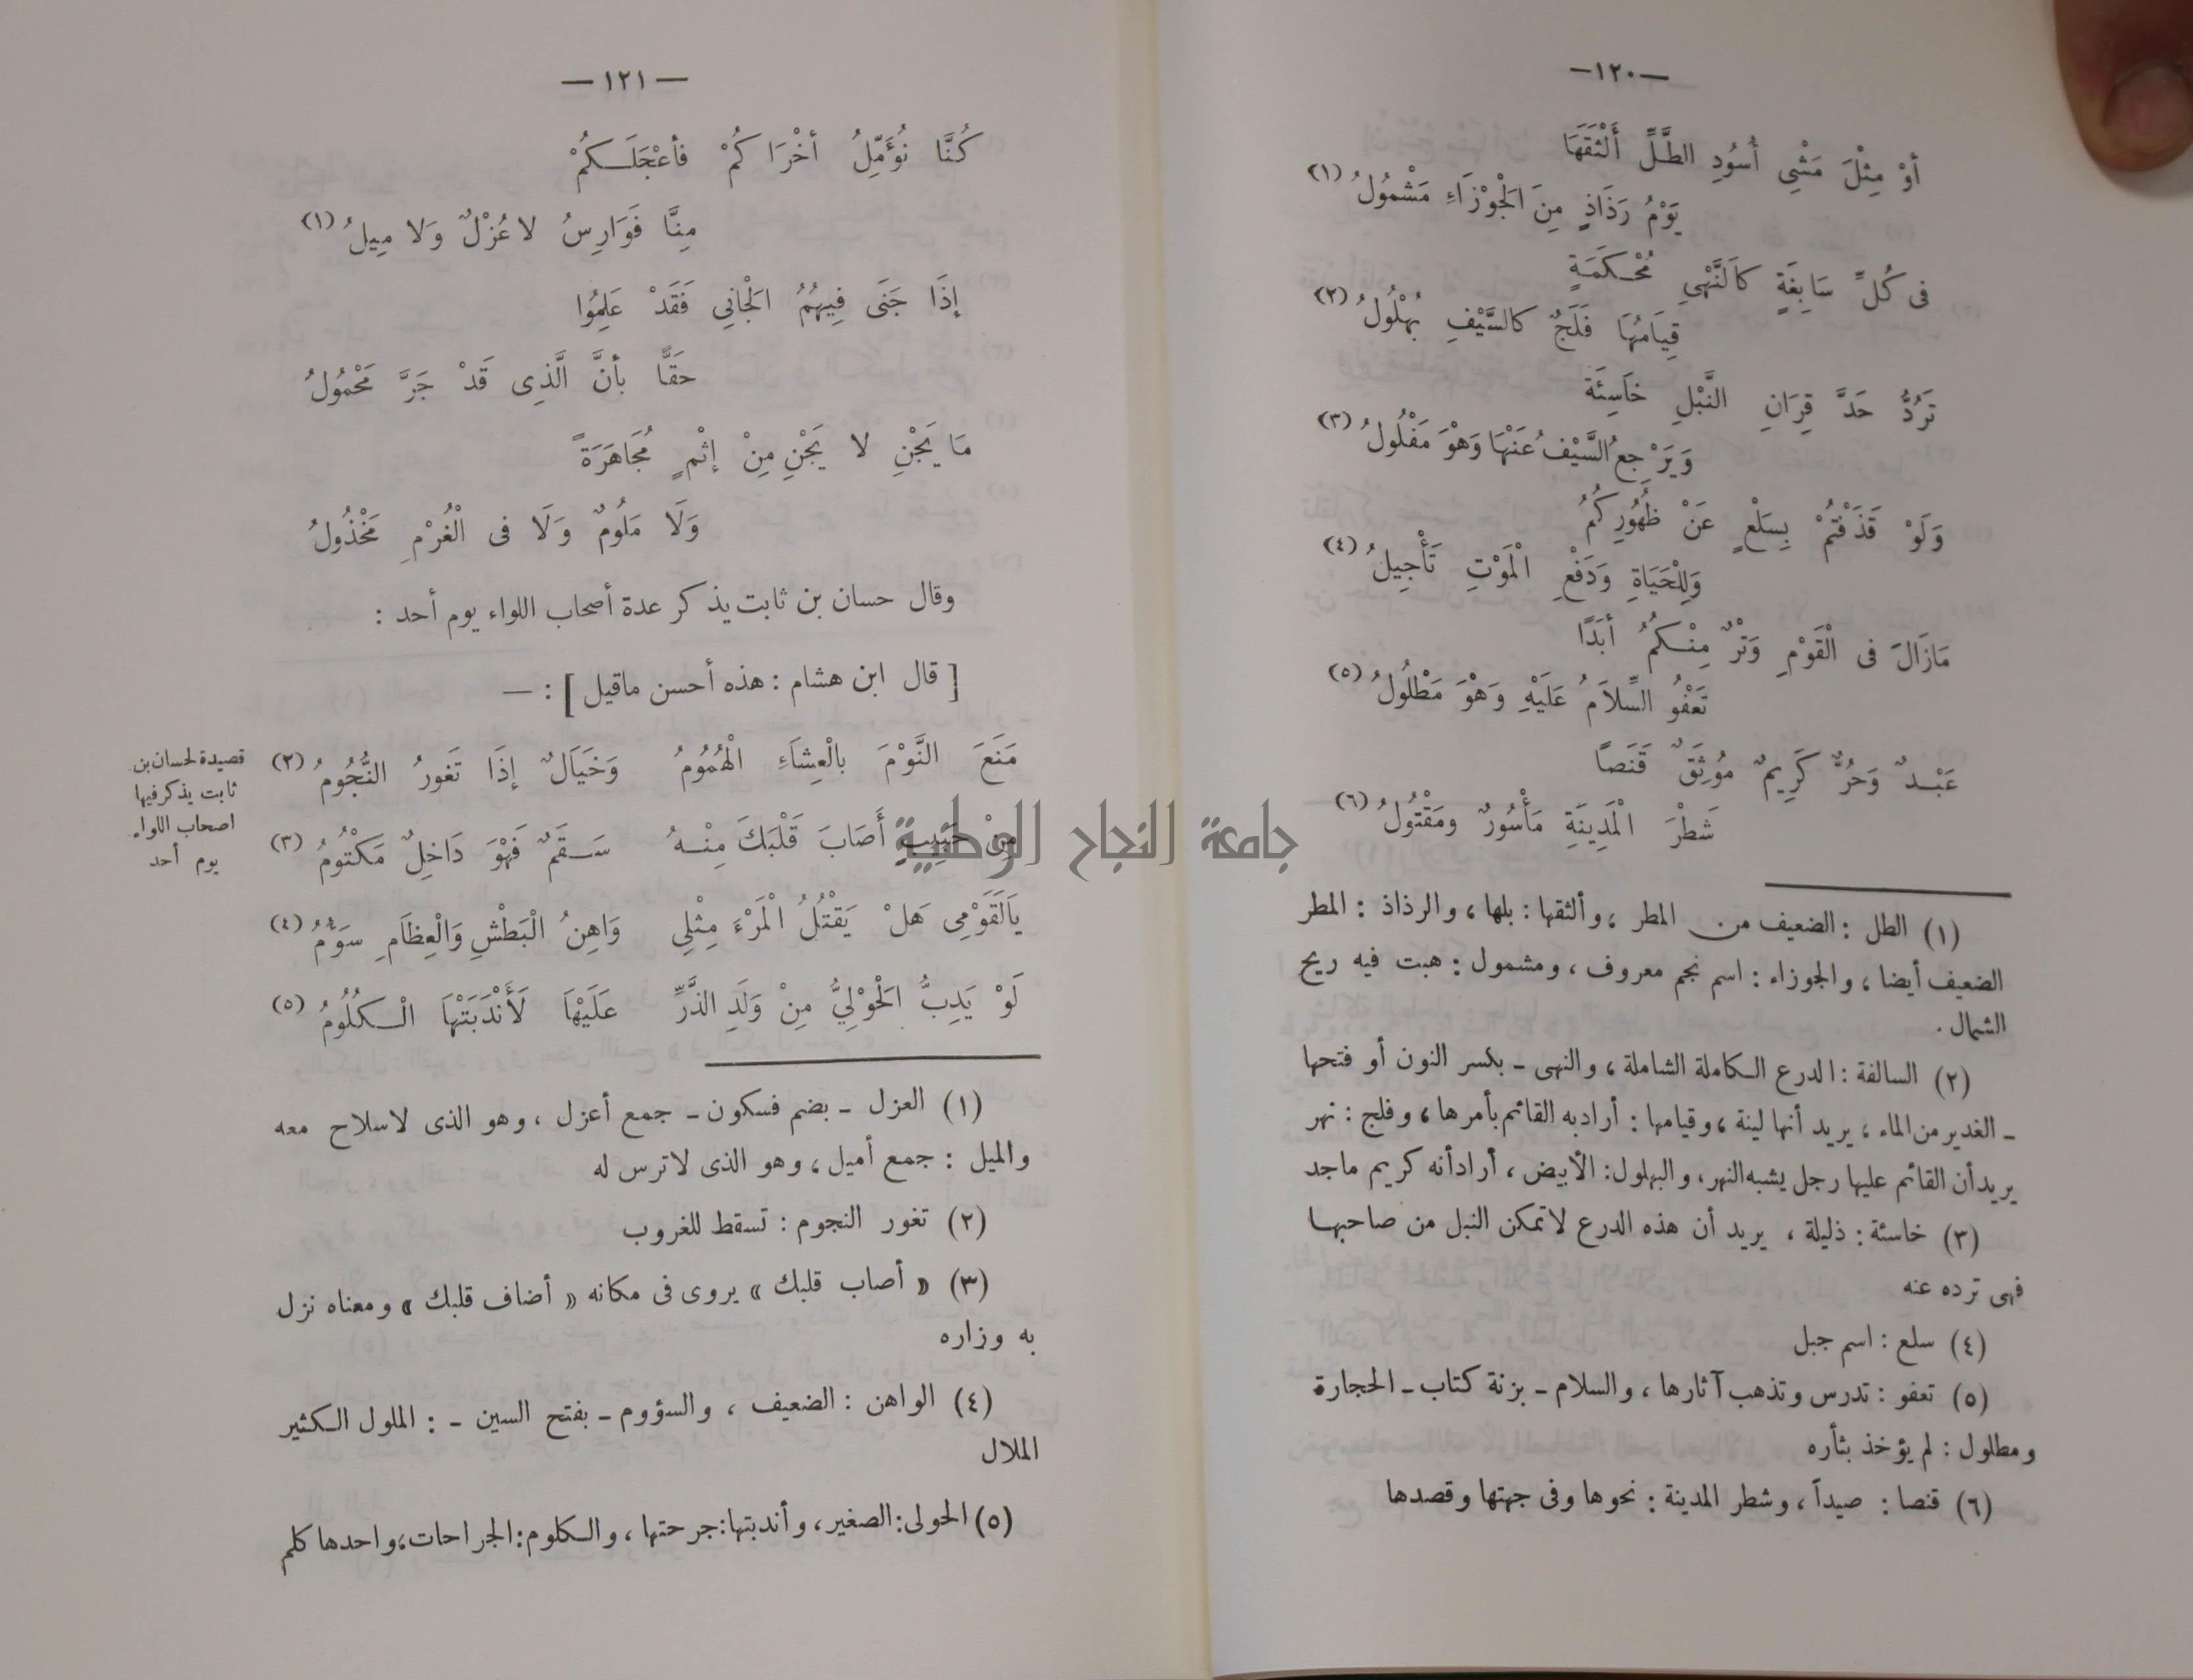 —١٢٠—
أَوْ مِثْلَ مَشْىِ أُسُودِ الطَّلِّ أَلْثَقَهَا
يَوْمُ رَذَاذٍ مِنَ الْجَوْزَاءِ مَشْمُولُ (١)
فى كُلِّ سَابِغَةٍ كَالنَّهْىِ مُحْكَمَةٍ
قِيَامُهَا فَلَجٌ كالسَّيْفِ بُهْلُولُ (٢)
تَرُدُّ حَدَّ قِرَانِ النَّبْلِ خَاسِئَة
وَيَرْجِعُ السَّيْفُ عَنْهَا وَهْوَ مَفْلُولُ (٣)
وَلَوْ قَذَفْتُمْ بِسَلْعٍ عَنْ ظُهُورِكُمُ
وَلِلْحَيَاةِ وَدَفْعِ الْمَوْتِ تَأْجِيلُ (٤)
مَازَالَ فى الْقَوْمِ وَتْرٌ مِنْكُمُ أَبَدًا
تَعْفُو السِّلاَمُ عَلَيْهِ وَهْوَ مَطْلُولُ (٥)
عَبْدٌ وَحُرٌّ كَرِيمٌ مُوثِقٌ قَنَصًا
شَطْرَ الْمَدِينَةِ مَأْسُورٌ ومَقْتُولُ (٦)
(١) الطل : الضعيف من المطر ، وألثقها : بلها ، والرذاذ : المطر
الضعيف أيضا ، والجوزاء : اسم نجم معروف ، ومشمول : هبت فيه ريح
الشمال .
(٢) السالفة : الدرع الكاملة الشاملة ، والنهى ـ بكسر النون أو فتحها
ـ الغدير من الماء ، يريد أنها لينة ، وقيامها : أراد به القائم بأمرها ، وفلج : نهر
يريد أن القائم عليها رجل يشبه النهر ، والبهلول : الأبيض ، أراد أنه كريم ماجد
(٣) خاسئة : ذليلة ، يريد أن هذه الدرع لا تمكن النبل من صاحبها
فهى ترده عنه
(٤) سلع : اسم جبل
(٥) تعفو : تدرس وتذهب آثارها ، والسلام ـ بزنة كتاب ـ الحجارة
ومطلول : لم يؤخذ بثأره
(٦) قنصا : صيداً ، وشطر المدينة : نحوها وفى جهتها وقصدها
— ١٢١ —
كُنَّا نُؤَمِّلُ أُخْرَاكُمْ فأعْجَلَكُمْ
مِنَّا فَوَارِسُ لا عُزْلٌ وَلا مِيلُ (١)
إِذَا جَنَى فِيهُمُ الْجَانِي فَقَدْ عَلِمُوا
حَقًّا بأنَّ الَّذِى قَدْ جَرَّ مَحْمُولُ
مَا يَجْنِ لا يَجْنِ مِنْ إِثْمٍ مُجَاهَرَةً
وَلَا مَلُومٌ وَلَا فى الْغُرْمِ مَخْذُولُ
وقال حسان بن ثابت يذكر عدة أصحاب اللواء يوم أحد :
[ قال ابن هشام : هذه أحسن ماقيل ] : —
مَنَعَ النَّوْمَ بالْعِشَاءِ الْهُمُومُ وَخَيَالٌ إِذَا تَغورُ النُّجُومُ (٢)
مِنْ حَبِيبٍ أَصَابَ قَلْبَكَ مِنْهُ سَقَمٌ فَهْوَ دَاخِلٌ مَكْتُومُ (٣)
يَالَقَوْمِى هَلْ يَقْتُلُ الْمَرْءَ مِثْلِى وَاهِنُ الْبَطْشِ وَالْعِظَامِ سَؤُمُ (٤)
لَوْ يَدِبُّ الْحَوْلِيُّ مِنْ وَلَدِ الذَّرِّ عَلَيْهَا لَأَنْدَبَتْهَا الْكُلُومُ (٥)
قصيدة لحسان بن
ثابت يذكر فيها
اصحاب اللواء
يوم أحد
(١) العزل ـ بضم فسكون ـ جمع أعزل ، وهو الذى لا سلاح معه
والميل : جمع أميل ، وهو الذى لا ترس له
(٢) تغور النجوم : تسقط للغروب
(٣) « أصاب قلبك » يروى فى مكانه « أضاف قلبك » ومعناه نزل
به وزاره
(٤) الواهن : الضعيف ، والسؤوم ـ بفتح السين ـ : الملول الكثير
الملال
(٥) الحولى : الصغير ، وأندبتها : جرحتها ، والكلوم : الجراحات ، واحدها كلم
جامعة النجاح الوطنية